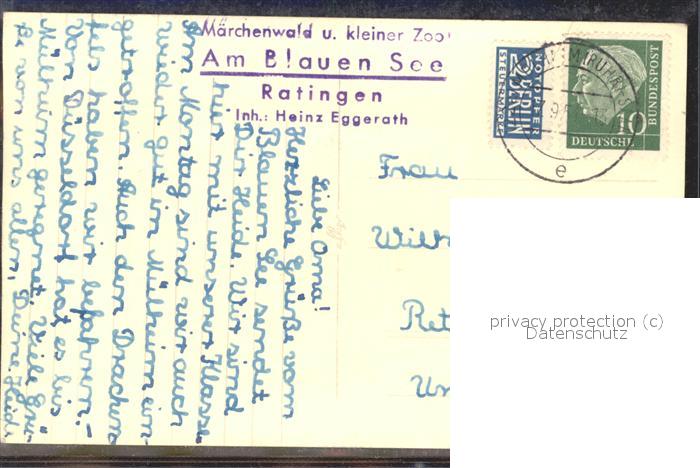 Märchenwald u. kleiner Zoo
Am Blauen See
Ratingen
Inh.: Heinz Eggerath
NOTOPFER
2 BERLIN
STEUERMARKE
10
DEUTSCHE
BUNDESPOST
e
Liebe Oma!
Herzliche Grüße vom
Blauen See sendet
Dir Heide. Wir sind
hier mit unserer Klasse.
Am Montag sind wir auch
wieder gut in Mülheim ein-
getroffen. Auch den Drachen-
fels haben wir befahren.
Von Düsseldorf hat es bis
Mülheim geregnet. Viele Grü-
ße von uns allen, Deine Heide
Frau
Wilh
Ret
Un
privacy protection (c)
Datenschutz